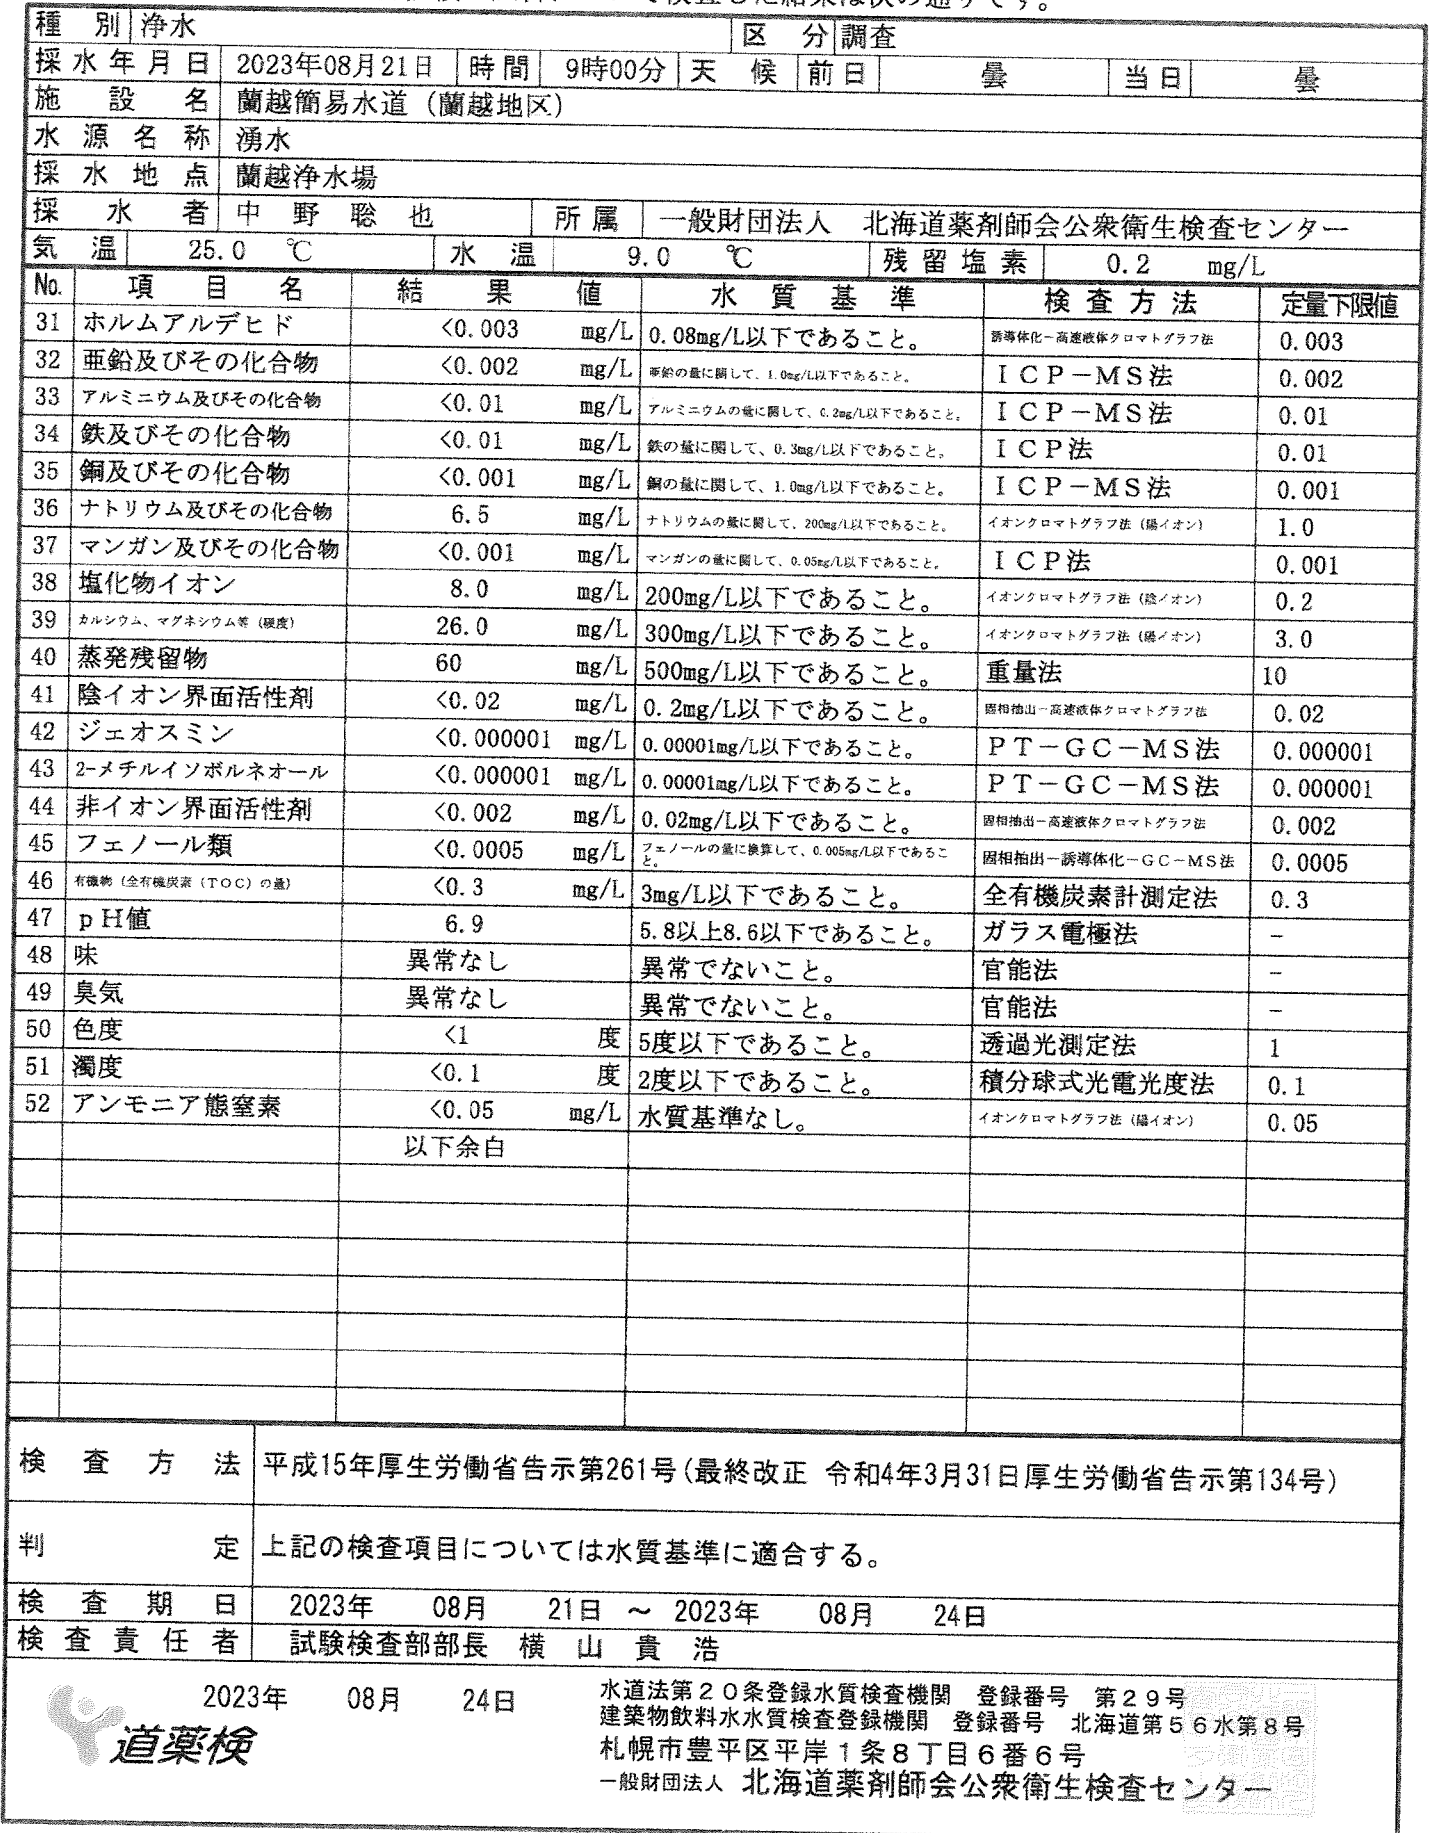 検査した結果は次の通りです。
種別 浄水 区分 調査
採水年月日 2023年08月21日 時間 9時00分 天候 前日 曇 当日 曇
施設名 蘭越簡易水道（蘭越地区）
水源名称 湧水
採水地点 蘭越浄水場
採水者 中野聡也 所属 一般財団法人 北海道薬剤師会公衆衛生検査センター
気温 25.0 ℃ 水温 9.0 ℃ 残留塩素 0.2 mg/L
No. 項目名 結果値 水質基準 検査方法 定量下限値
31 ホルムアルデヒド <0.003 mg/L 0.08mg/L以下であること。 誘導体化－高速液体クロマトグラフ法 0.003
32 亜鉛及びその化合物 <0.002 mg/L 亜鉛の量に関して、1.0mg/L以下であること。 ＩＣＰ－ＭＳ法 0.002
33 アルミニウム及びその化合物 <0.01 mg/L アルミニウムの量に関して、0.2mg/L以下であること。 ＩＣＰ－ＭＳ法 0.01
34 鉄及びその化合物 <0.01 mg/L 鉄の量に関して、0.3mg/L以下であること。 ＩＣＰ法 0.01
35 銅及びその化合物 <0.001 mg/L 銅の量に関して、1.0mg/L以下であること。 ＩＣＰ－ＭＳ法 0.001
36 ナトリウム及びその化合物 6.5 mg/L ナトリウムの量に関して、200mg/L以下であること。 イオンクロマトグラフ法（陽イオン） 1.0
37 マンガン及びその化合物 <0.001 mg/L マンガンの量に関して、0.05mg/L以下であること。 ＩＣＰ法 0.001
38 塩化物イオン 8.0 mg/L 200mg/L以下であること。 イオンクロマトグラフ法（陰イオン） 0.2
39 カルシウム、マグネシウム等（硬度） 26.0 mg/L 300mg/L以下であること。 イオンクロマトグラフ法（陽イオン） 3.0
40 蒸発残留物 60 mg/L 500mg/L以下であること。 重量法 10
41 陰イオン界面活性剤 <0.02 mg/L 0.2mg/L以下であること。 固相抽出－高速液体クロマトグラフ法 0.02
42 ジェオスミン <0.000001 mg/L 0.00001mg/L以下であること。 ＰＴ－ＧＣ－ＭＳ法 0.000001
43 2-メチルイソボルネオール <0.000001 mg/L 0.00001mg/L以下であること。 ＰＴ－ＧＣ－ＭＳ法 0.000001
44 非イオン界面活性剤 <0.002 mg/L 0.02mg/L以下であること。 固相抽出－高速液体クロマトグラフ法 0.002
45 フェノール類 <0.0005 mg/L フェノールの量に換算して、0.005mg/L以下であること。 固相抽出－誘導体化－ＧＣ－ＭＳ法 0.0005
46 有機物（全有機炭素（ＴＯＣ）の量） <0.3 mg/L 3mg/L以下であること。 全有機炭素計測定法 0.3
47 ｐＨ値 6.9 5.8以上8.6以下であること。 ガラス電極法 －
48 味 異常なし 異常でないこと。 官能法 －
49 臭気 異常なし 異常でないこと。 官能法 －
50 色度 <1 度 5度以下であること。 透過光測定法 1
51 濁度 <0.1 度 2度以下であること。 積分球式光電光度法 0.1
52 アンモニア態窒素 <0.05 mg/L 水質基準なし。 イオンクロマトグラフ法（陽イオン） 0.05
以下余白
検査方法 平成15年厚生労働省告示第261号(最終改正 令和4年3月31日厚生労働省告示第134号)
判定 上記の検査項目については水質基準に適合する。
検査期日 2023年 08月 21日 ～ 2023年 08月 24日
検査責任者 試験検査部部長 横山貴浩
2023年 08月 24日
道薬検
水道法第２０条登録水質検査機関 登録番号 第２９号
建築物飲料水水質検査登録機関 登録番号 北海道第５６水第８号
札幌市豊平区平岸１条８丁目６番６号
一般財団法人 北海道薬剤師会公衆衛生検査センター